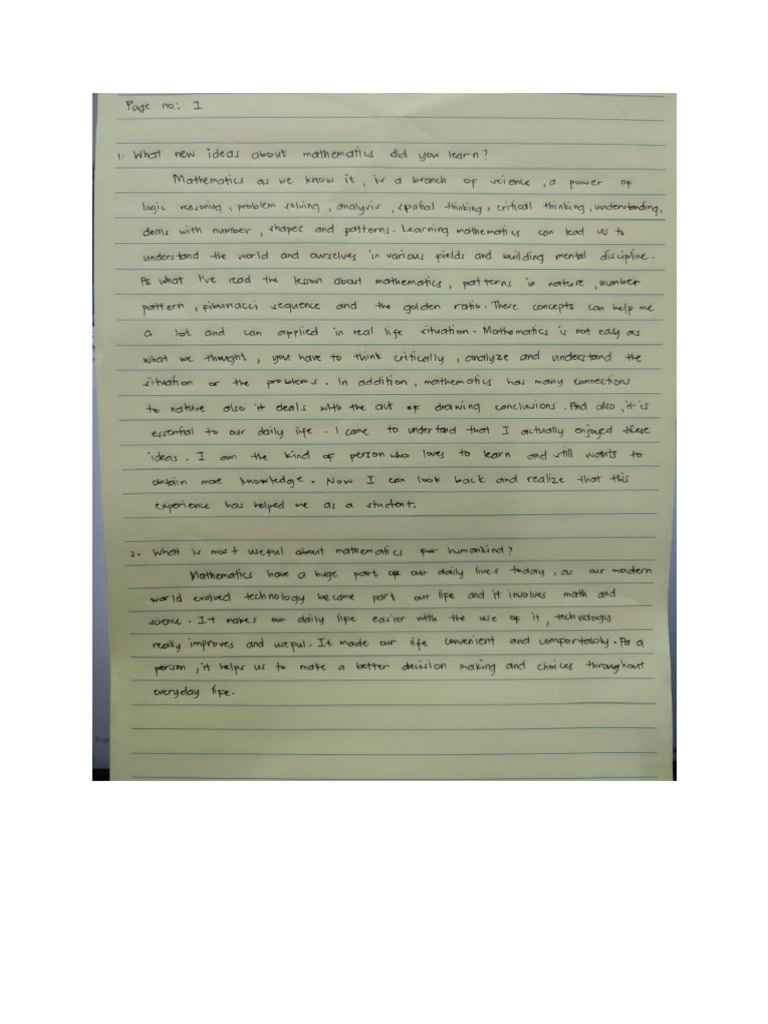 Page no: I
1. What new ideas about mathematics did you learn?
Mathematics as we know it, is a branch of science, a power of
logic reasoning, problem solving, analysis, spatial thinking, critical thinking, understanding,
deals with number, shapes and patterns. Learning mathematics can lead us to
understand the world and ourselves in various fields and building mental discipline.
As what I've read the lesson about mathematics, patterns in nature, number
pattern, fibunacci sequence and the golden ratio. These concepts can help me
a lot and can applied in real life situation. Mathematics is not easy as
what we thought, you have to think critically, analyze and understand the
situation or the problems. In addition, mathematics has many connections
to nature also it deals with the act of drawing conclusions. And also, it is
essential to our daily life. I came to understand that I actually enjoyed these
ideas. I am the kind of person who loves to learn and still wants to
obtain more knowledge. Now I can look back and realize that this
experience has helped me as a student.
2. What is most useful about mathematics for humankind?
Mathematics have a huge part of our daily lives today, as our modern
world evolved technology became part our life and it involves math and
science. It makes our daily life easier with the use of it, technology
really improves and useful. It made our life convenient and comfortably. As a
person, it helps us to make a better decision making and choices throughout
everyday life.